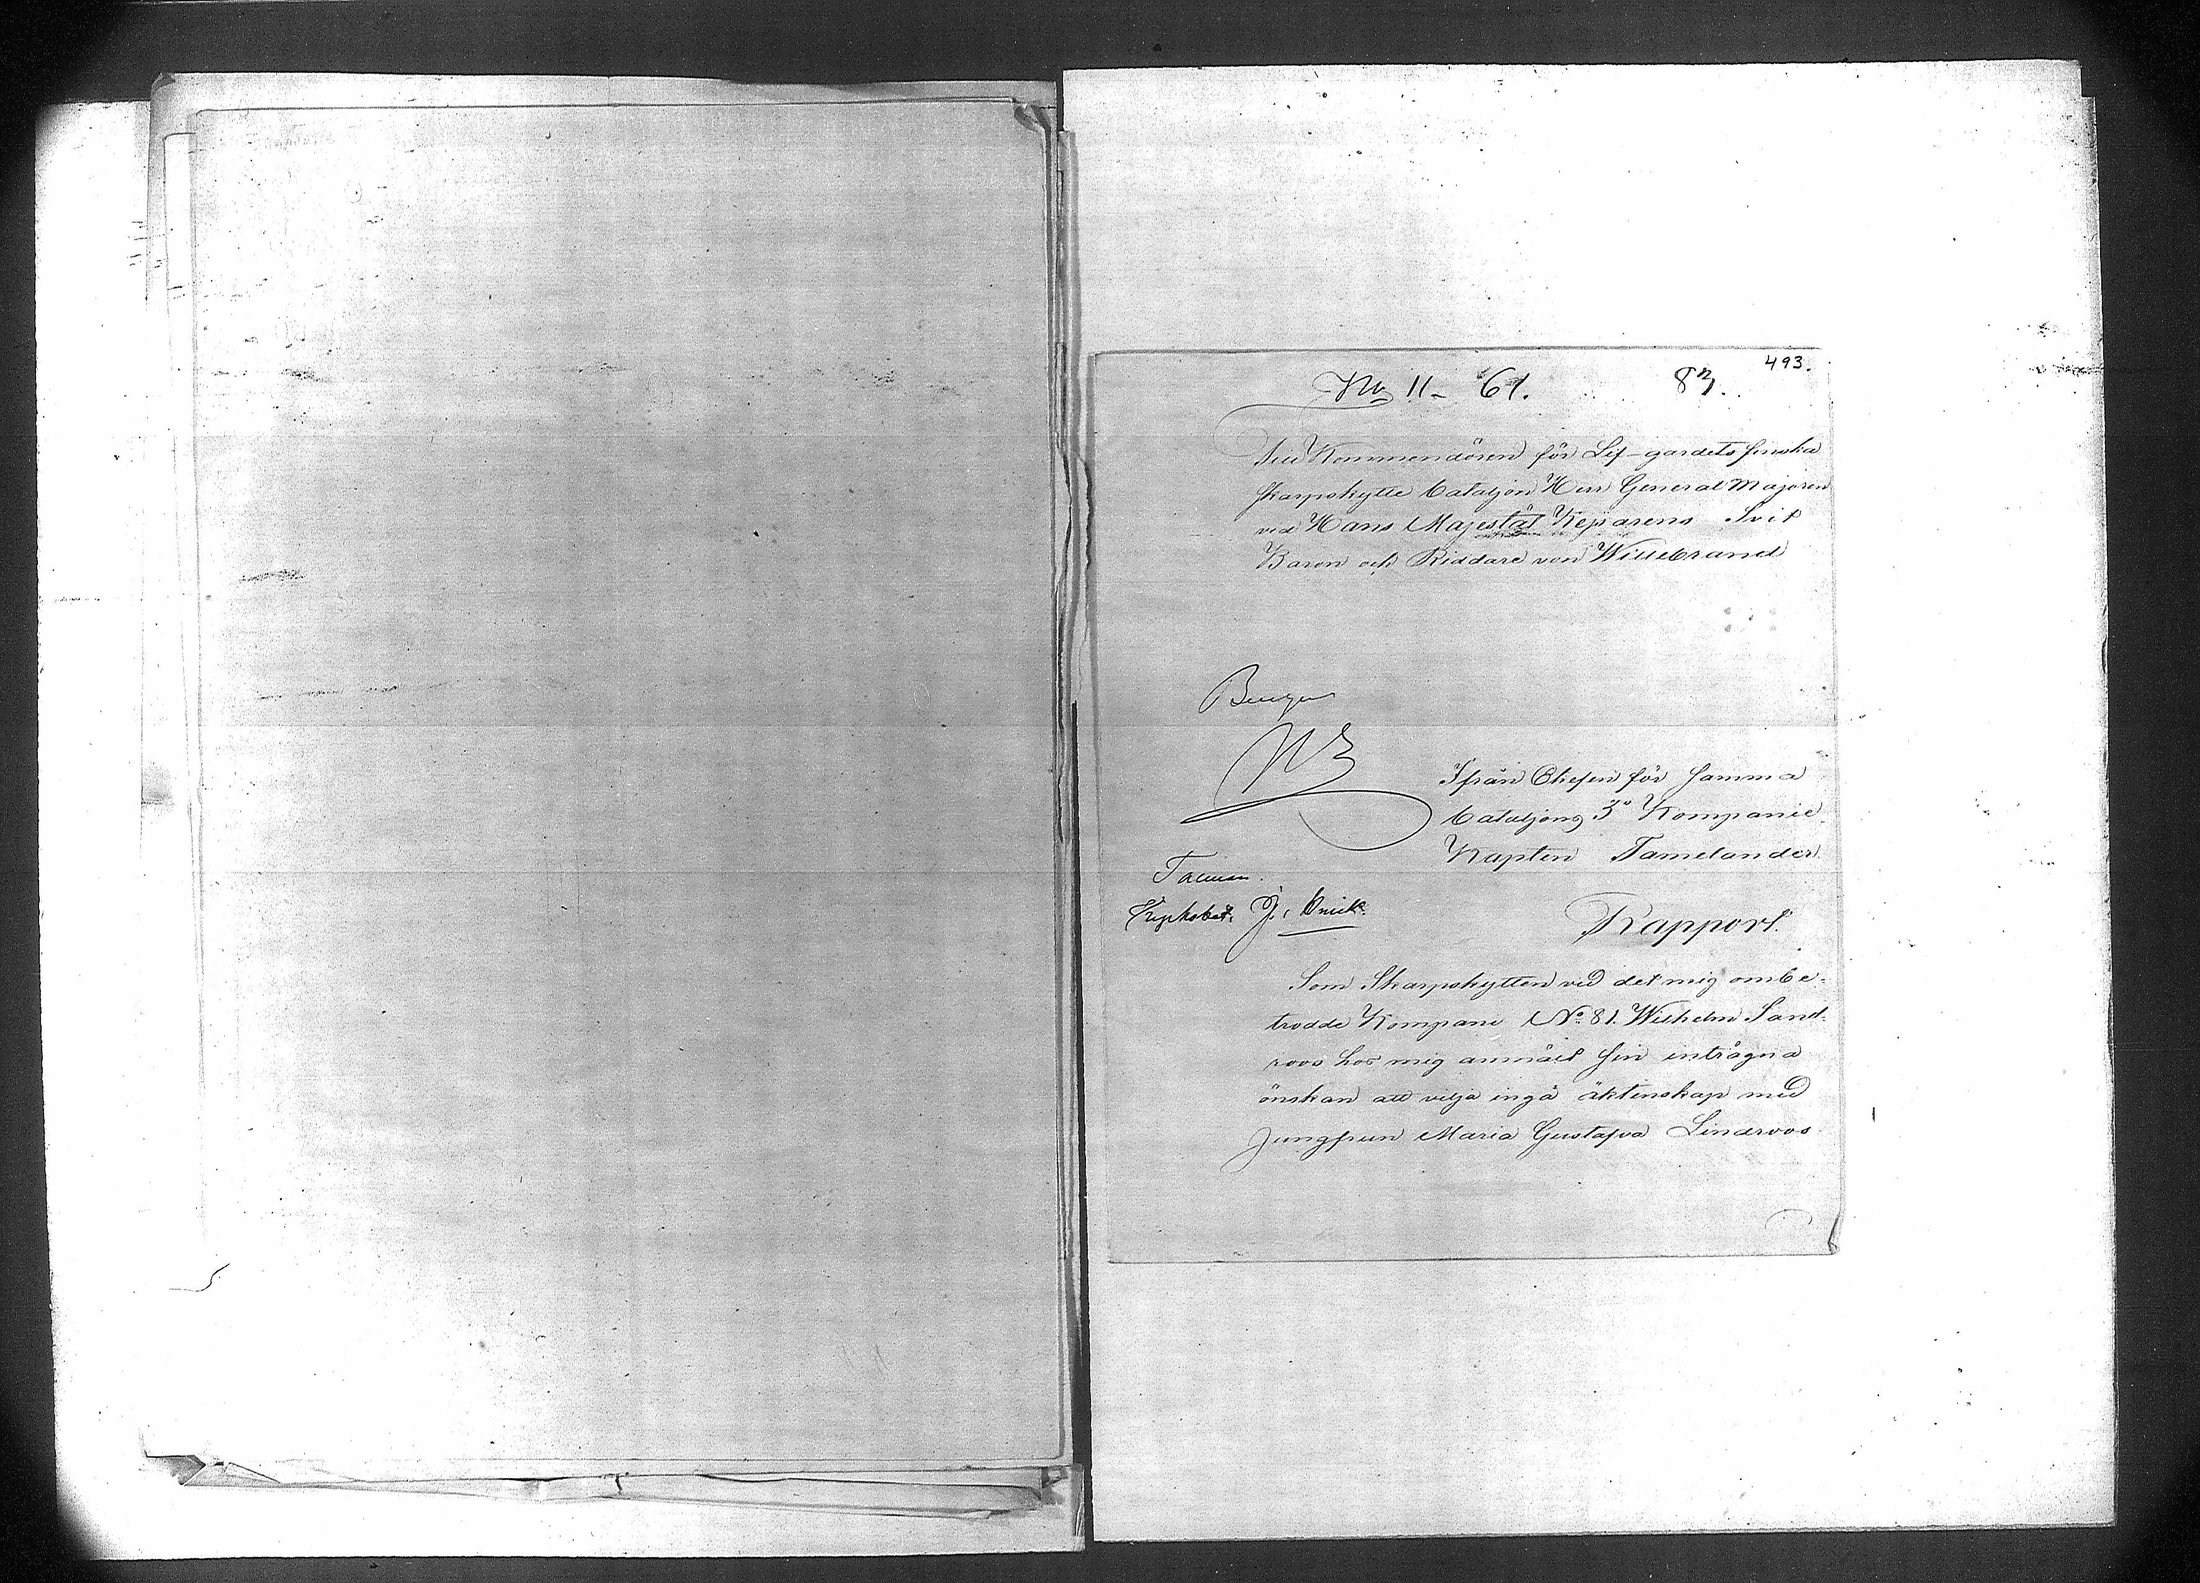 493.
No 11 - 61. 83.
Till Kommendören för Lif-gardets finska
skarpskytte bataljon Herr General Majoren
vid Hans Majestät Kejsarens Svit
Baron och Riddare von Willebrand
Ifrån Chefen för samma
bataljons 3e Kompanie
Kapten Tamelander
Rapport.
Som Skarpskytten vid det mig ombe-
trodde Kompani No 81. Wilhelm Sand-
roos hos mig anmält sin inträgna
önskan att vilja ingå äktenskap med
Jungfrun Maria Gustafva Lindroos